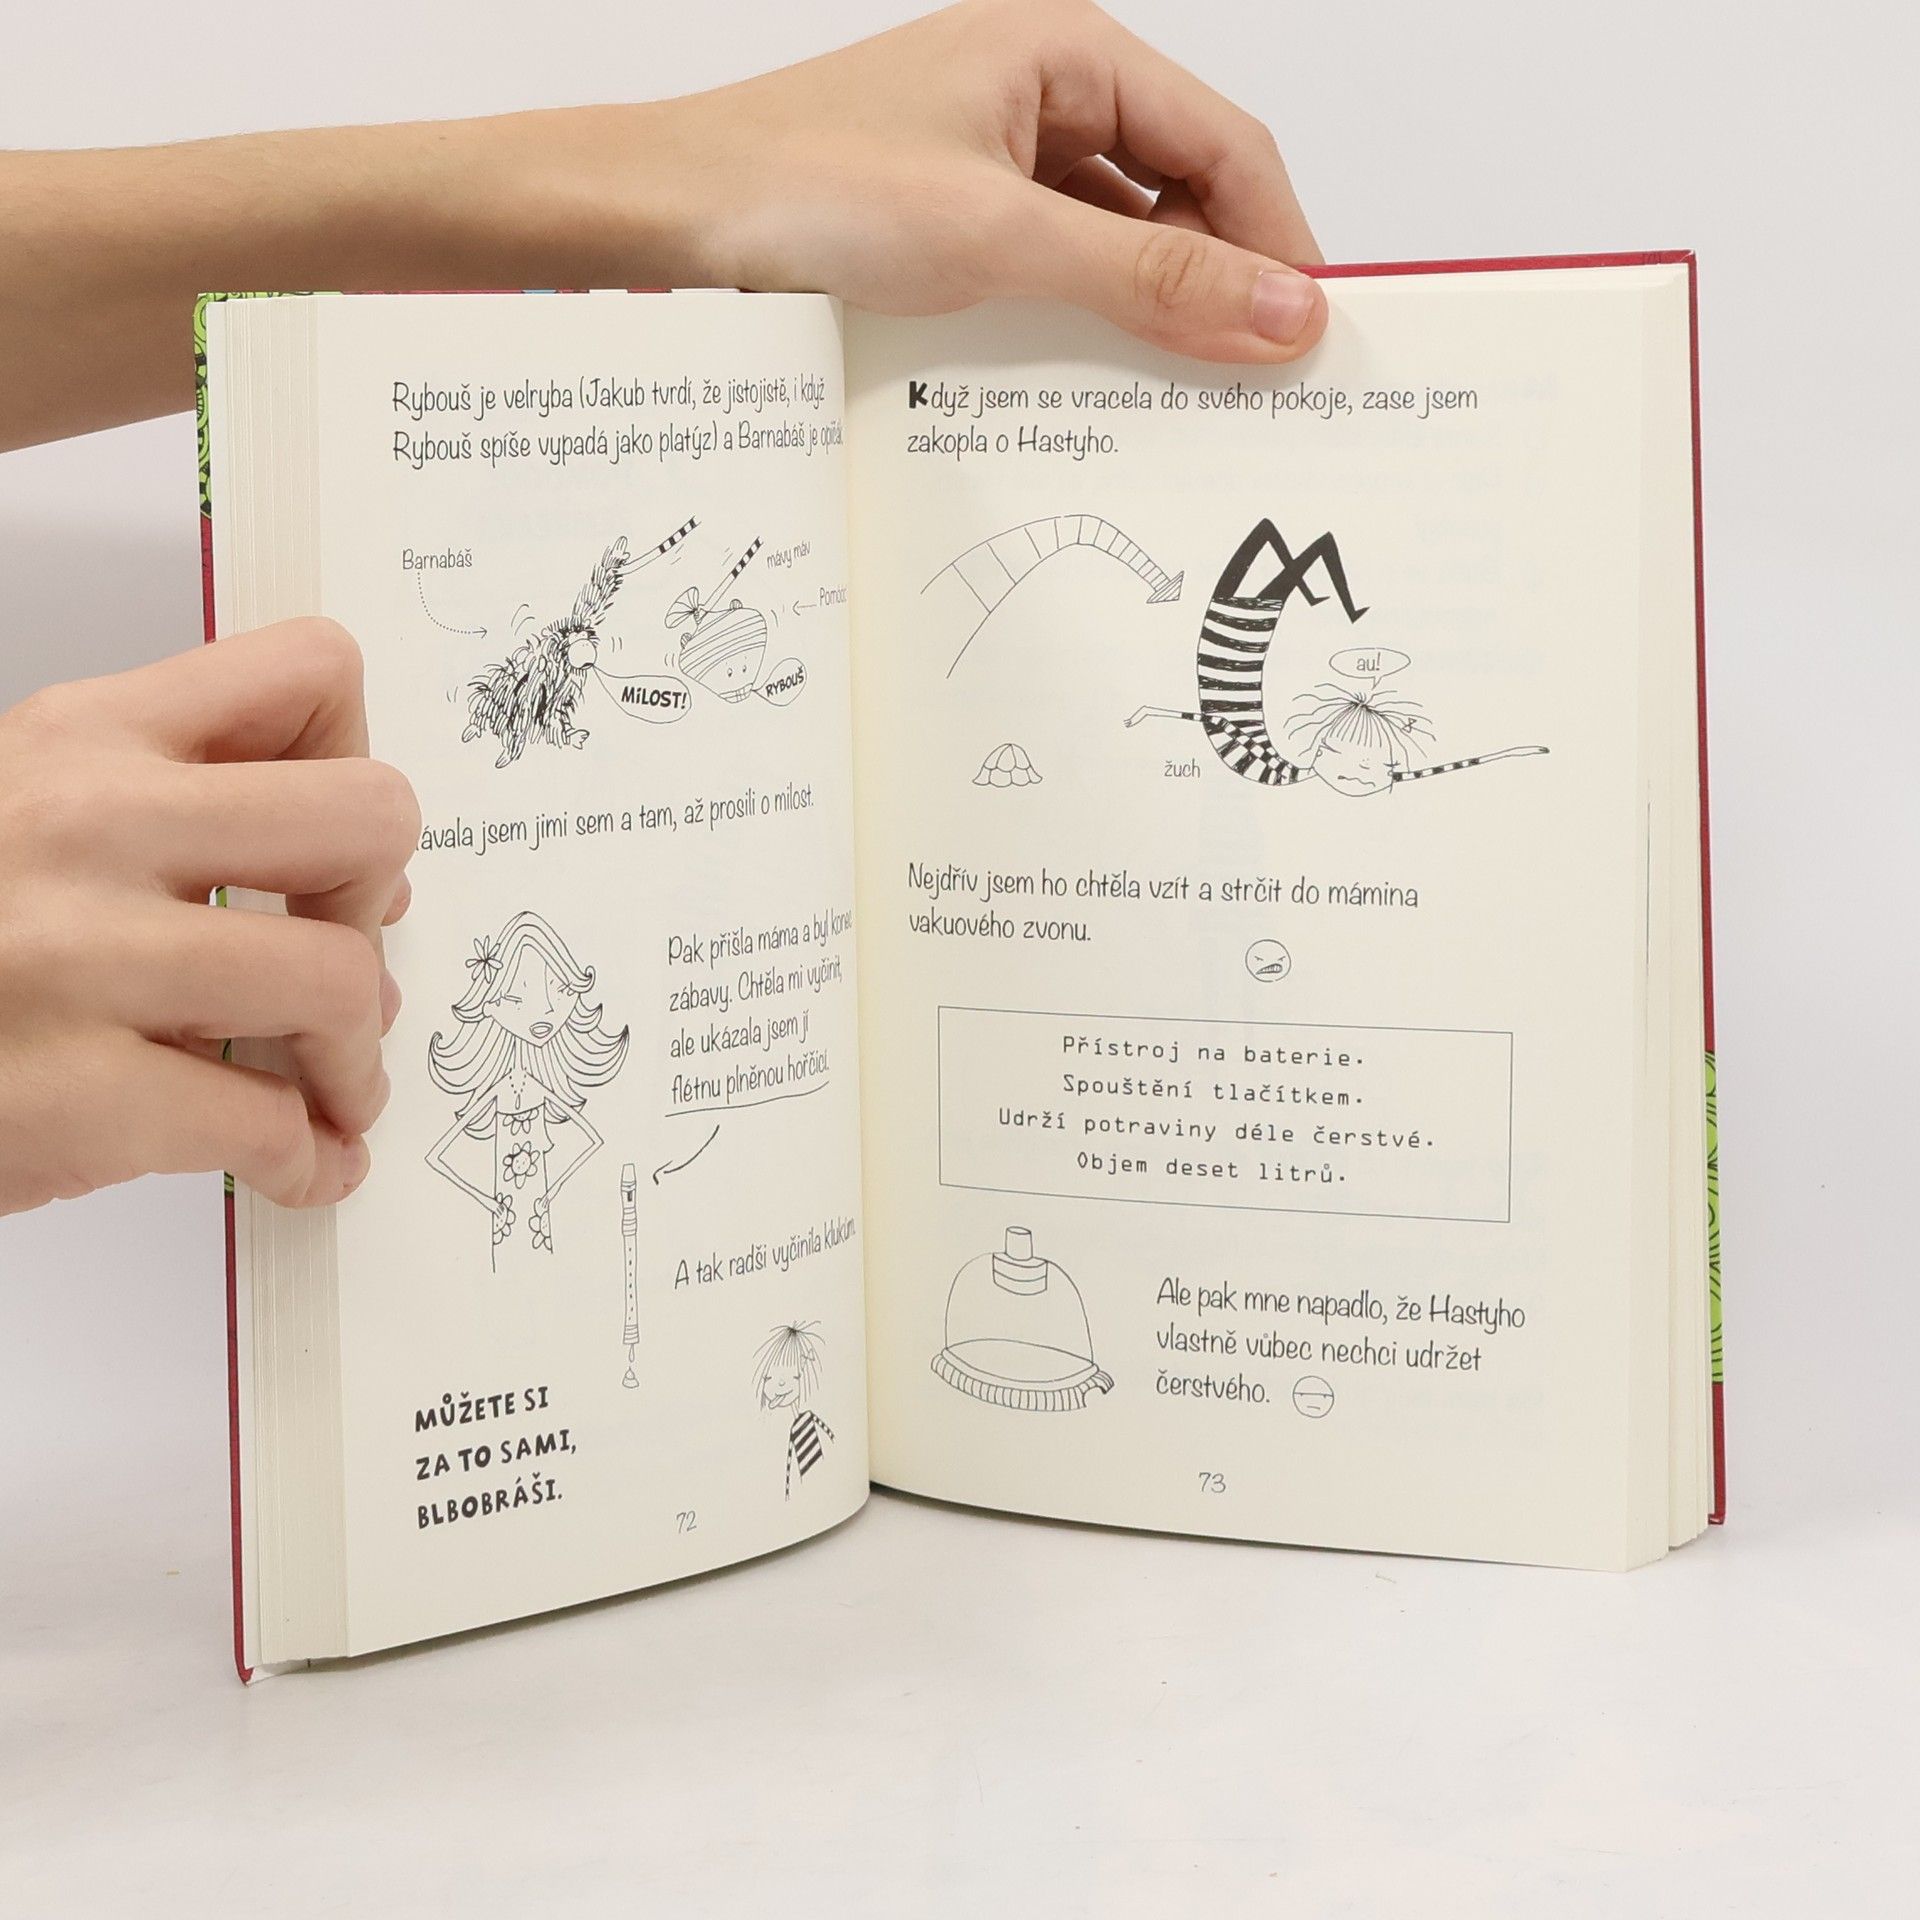 Rybouš je velryba (Jakub tvrdí, že jistojistě, i když
Rybouš spíše vypadá jako platýz) a Barnabáš je
Barnabáš
mávy máv
MILOST!
RYBOUŠ
jsem jimi sem a tam, až prosili o milost.
Pak přišla máma a byl konec
zábavy. Chtěla mi vyčinit,
ale ukázala jsem jí
flétnu plněnou hořčicí.
A tak radši vyčinila klukům.
MŮŽETE SI
ZA TO SAMI,
BLBOBRÁŠI.
72
Když jsem se vracela do svého pokoje, zase jsem
zakopla o Hastyho.
au!
žuch
Nejdřív jsem ho chtěla vzít a strčit do mámina
vakuového zvonu.
Přístroj na baterie.
Spouštění tlačítkem.
Udrží potraviny déle čerstvé.
Objem deset litrů.
Ale pak mne napadlo, že Hastyho
vlastně vůbec nechci udržet
čerstvého.
73